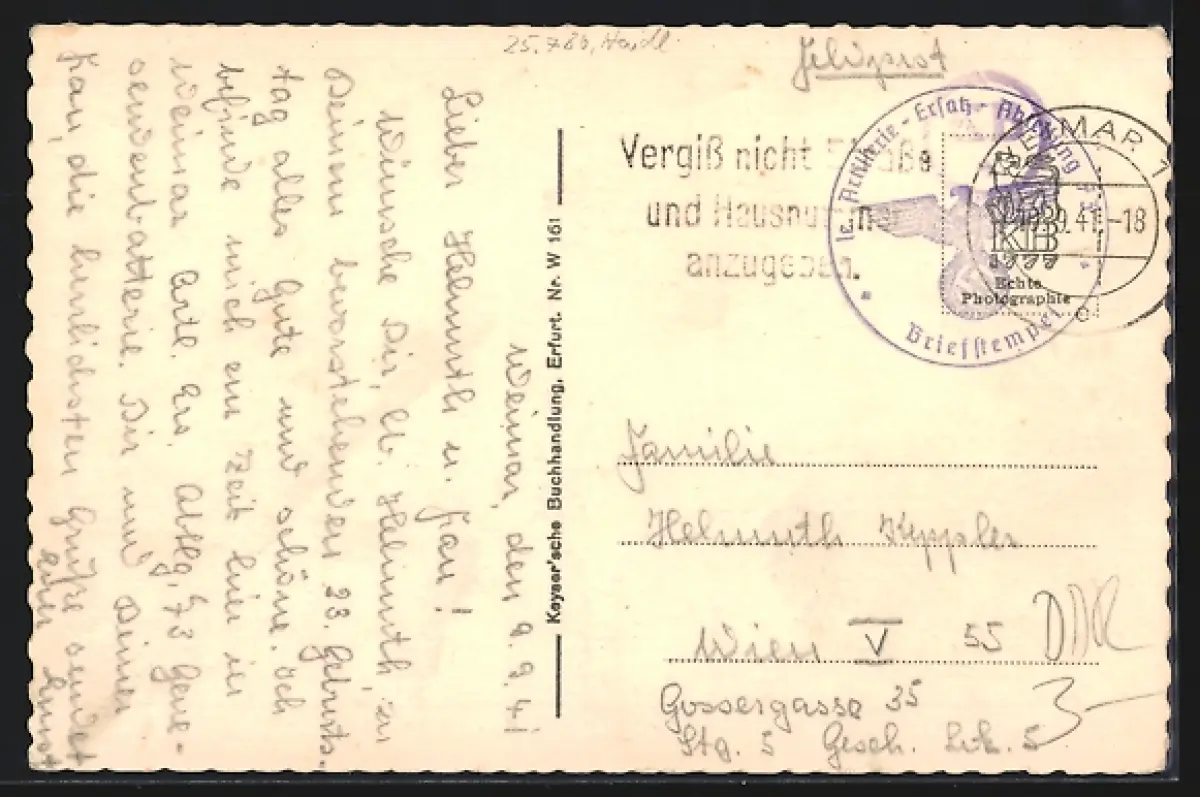 25.7.86, Haidl
Feldpost
Vergiß nicht Straße
und Hausnummer
anzugeben.
le. Artillerie-Ersatz-Abteilung 73
Briefstempel
WEIMAR 1
9.9.41.-18
KB
Echte
Photographie
e
Weimar, den 9.9.41
Lieber Helmuth u. Frau!
Wünsche Dir, lb. Helmuth, zu
Deinem bevorstehenden 23. Geburts-
tag alles Gute und schöne. Ich
befinde mich ein Zeit hier in
Weimar Artl. Ers. Abtlg. 73 Gene-
sendenbatterie. Dir und Deiner
Frau, die herzlichsten Grüße sendet
Euer Ernst
Kayser'sche Buchhandlung, Erfurt. Nr. W 161
Familie
Helmuth Keppler
Wien V 55
Gossergasse 35
Stg. 5 Gesch. Lok. 5
3-